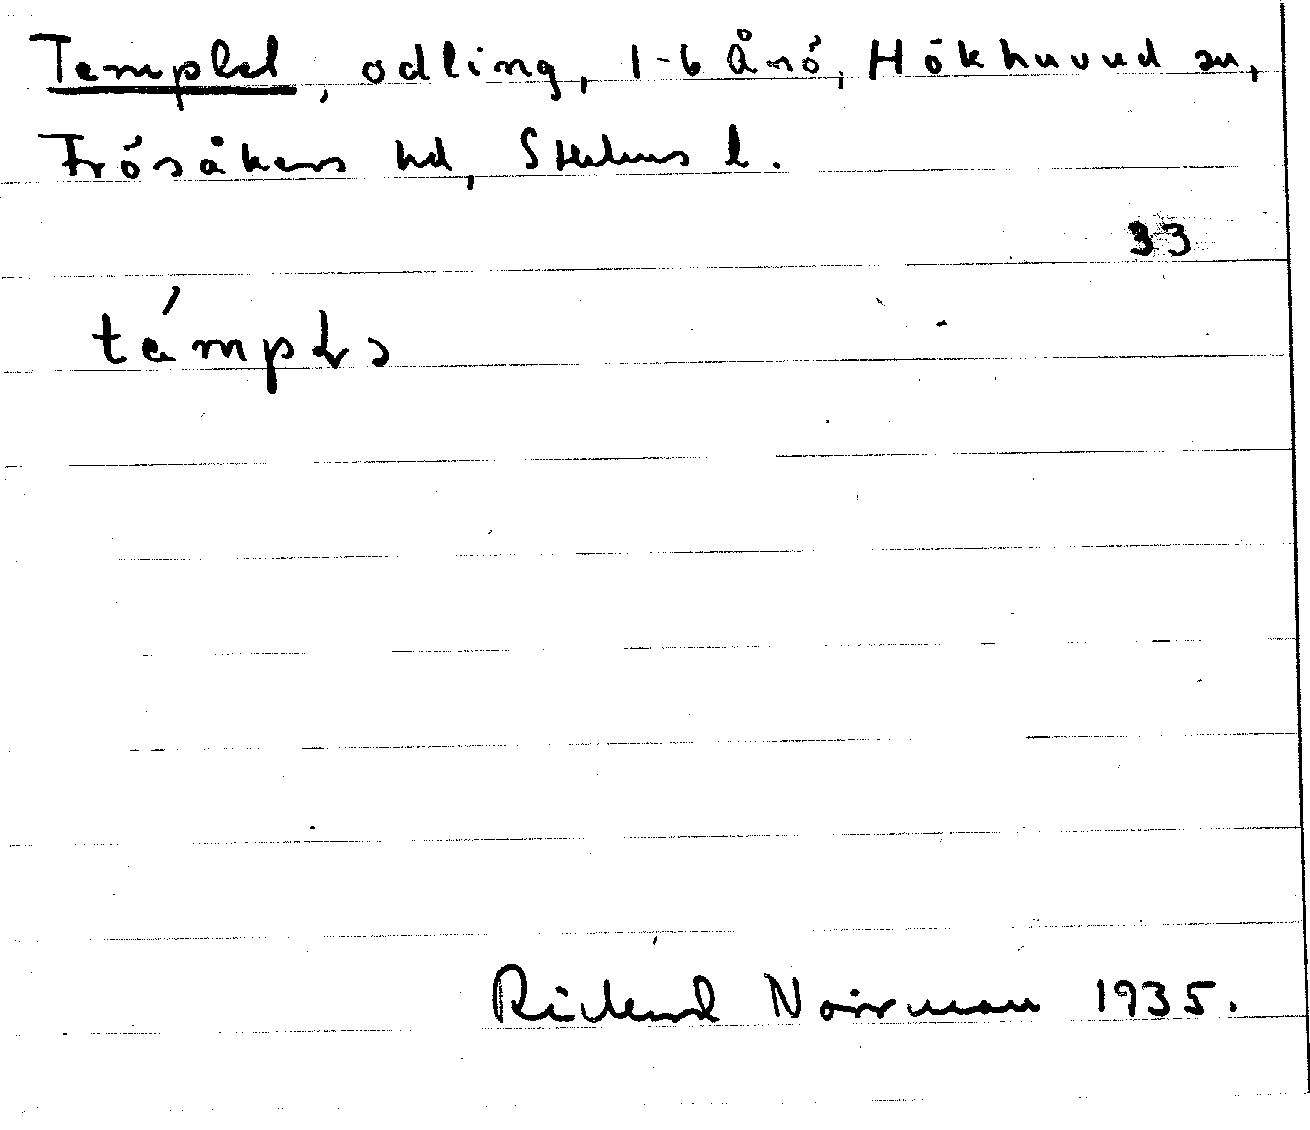 Templet, odling, 1-6 Ånö, Hökhuvud sn,
Frösåkers hd, Sthlms l.
33
Rickard Norrman 1935.